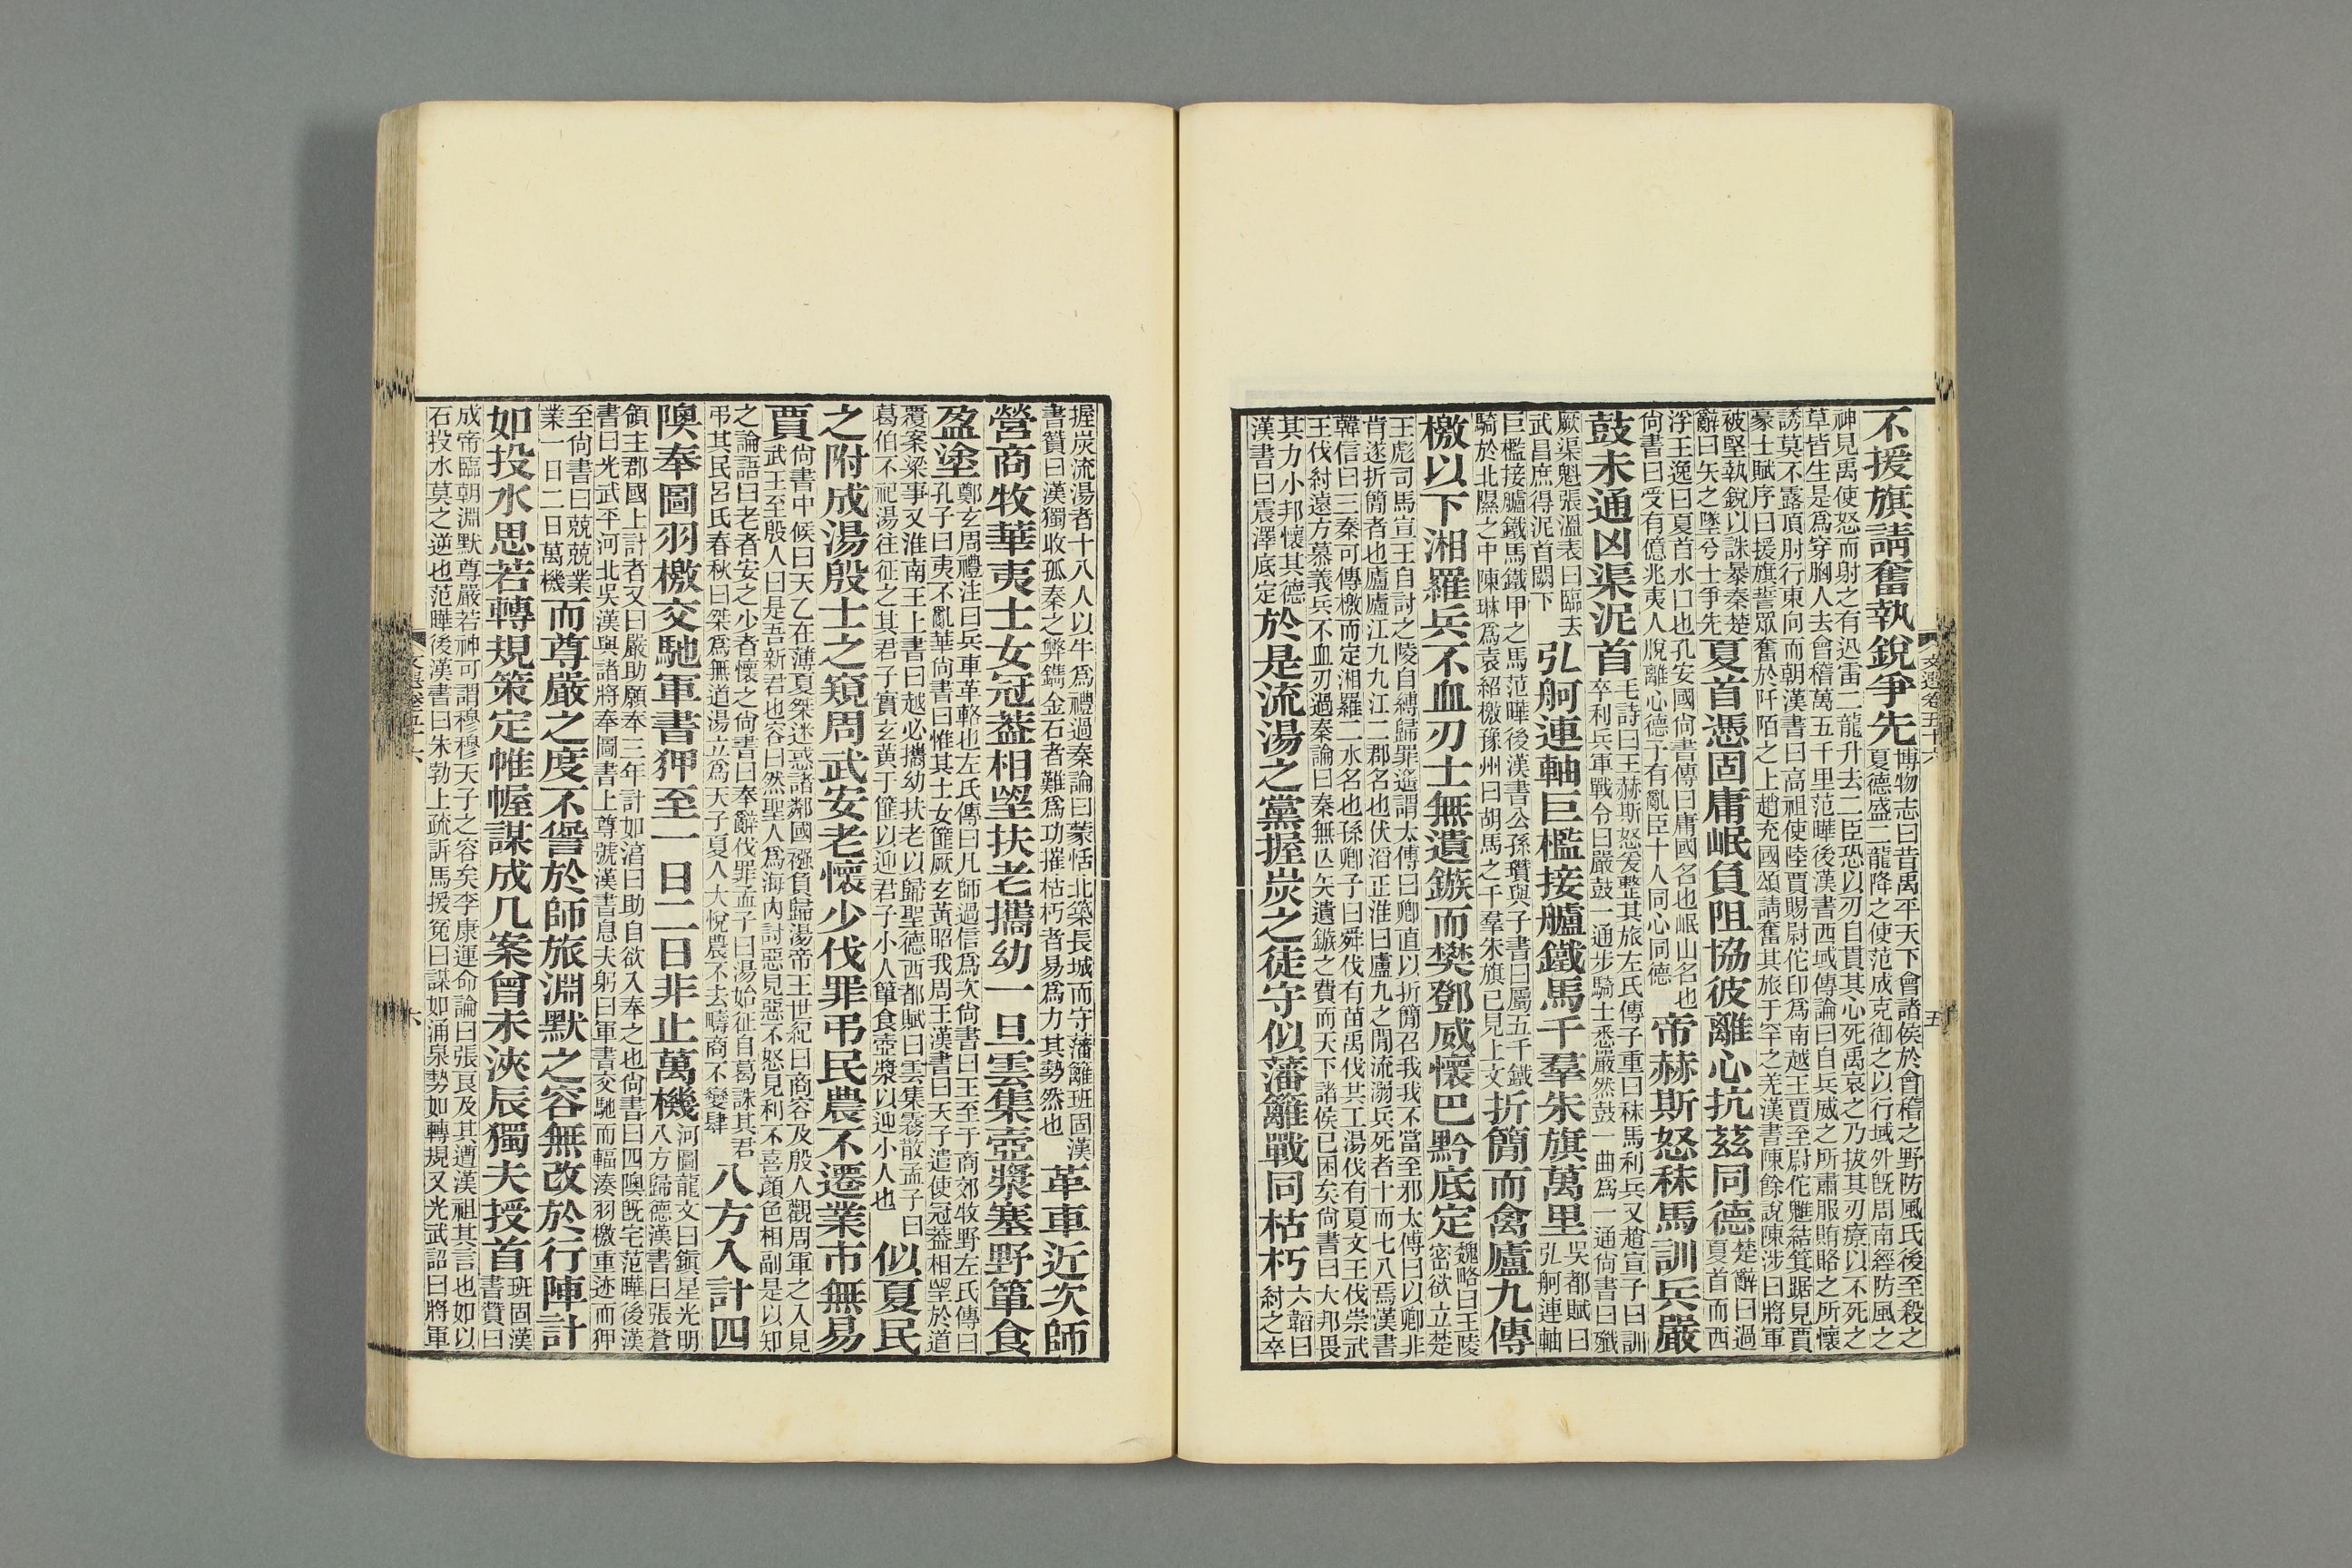 不援旗請奮執銳爭先博物志曰昔禹平天下會諸侯於會稽之野防風氏後至殺之夏德盛二龍降之使范成克御之以行域外既周南經防風之
神見禹使怒而射之有迅雷二龍升去二臣恐以刃自貫其心死禹哀之乃拔其刃療以不死之草皆生是爲穿胸人去會稽萬五千里范曄後漢書西域傳論曰自兵威之所肅服賄賂之所懷
誘莫不露頂肘行東向而朝漢書曰高祖使陸賈賜尉佗印爲南越王賈至尉佗魋結箕踞見賈豪士賦序曰援旗誓眾奮於阡陌之上趙充國頌請奮其旅于罕之羌漢書陳餘說陳涉曰將軍
破堅執銳以誅暴秦楚辭曰矢之墜兮士爭先夏首憑固庸岷負阻協彼離心抗茲同德楚辭曰過夏首而西
浮王逸曰夏首水口也孔安國尙書傳曰庸國名也岷山名也尙書曰受有億兆夷人脫離心德予有亂臣十人同心同德帝赫斯怒秣馬訓兵嚴
鼓未通凶渠泥首毛詩曰王赫斯怒爰整其旅左氏傳子重曰秣馬利兵又趙宣子曰訓卒利兵軍戰令曰嚴鼓一通步騎士悉嚴然鼓一曲爲一通尙書曰殲
厥渠魁張溫表曰臨去武昌庶得泥首闕下弘舸連軸巨檻接艫鐵馬千羣朱旗萬里吳都賦曰弘舸連軸
巨檻接艫鐵馬鐵甲之馬范曄後漢書公孫瓚與子書曰厲五千鐵騎於北隰之中陳琳爲袁紹檄豫州曰胡馬之千羣朱旗已見上文折簡而禽廬九傳
檄以下湘羅兵不血刃士無遺鏃而樊鄧威懷巴黔底定魏略曰王陵密欲立楚
王彪司馬宣王自討之陵自縛歸罪遙謂太傅曰卿直以折簡召我我不當至邪太傅曰以卿非肯遂折簡者也廬廬江九九江二郡名也伏滔正淮曰廬九之閒流溺兵死者十而七八焉漢書
韓信曰三秦可傳檄而定湘羅二水名也孫卿子曰舜伐有苗禹伐共工湯伐有夏文王伐崇武王伐紂遠方慕義兵不血刃過秦論曰秦無亾矢遺鏃之費而天下諸侯已困矣尙書曰大邦畏
其力小邦懷其德漢書曰震澤底定於是流湯之黨握炭之徒守似藩籬戰同枯朽六韜曰紂之卒
文選卷五十六
五
握炭流湯者十八人以牛爲禮過秦論曰蒙恬北築長城而守藩籬班固漢書贊曰漢獨收孤秦之弊鐫金石者難爲功摧枯朽者易爲力其勢然也革車近次師
營商牧華夷士女冠蓋相望扶老攜幼一旦雲集壺漿塞野簞食
盈塗鄭玄周禮注曰兵車革輅也左氏傳曰凡師過信爲次尙書曰王至于商郊牧野左氏傳曰孔子曰夷不亂華尙書曰惟其士女篚厥玄黃昭我周王漢書曰天子遣使冠蓋相望於道
覆案梁事又淮南王上書曰越必攜幼扶老以歸聖德西都賦曰雲集霧散孟子曰葛伯不祀湯往征之其君子實玄黃于篚以迎君子小人簞食壺漿以迎小人也似夏民
之附成湯殷士之窺周武安老懷少伐罪弔民農不遷業市無易
賈尙書中候曰天乙在薄夏桀迷惑諸鄰國襁負歸湯帝王世紀曰商容及殷人觀周軍之入見武王至殷人曰是吾新君也容曰然聖人爲海內討惡見惡不怒見利不喜顏色相副是以知
之論語曰老者安之少者懷之尙書曰奉辭伐罪孟子曰湯始征自葛誅其君弔其民呂氏春秋曰桀爲無道湯立爲天子夏人大悅農不去疇商不變肆八方入計四
隩奉圖羽檄交馳軍書狎至一日二日非止萬機河圖龍文曰鎭星光明八方歸德漢書曰張蒼
領主郡國上計者又曰嚴助願奉三年計如湻曰助自欲入奉之也尙書曰四隩旣宅范曄後漢書曰光武平河北吳漢與諸將奉圖書上尊號漢書息夫躬曰軍書交馳而輻湊羽檄重迹而狎
至尙書曰兢兢業業一日二日萬機而尊嚴之度不諐於師旅淵默之容無改於行陣計
如投水思若轉規策定帷幄謀成几案曾未浹辰獨夫授首班固漢書贊曰
成帝臨朝淵默尊嚴若神可謂穆穆天子之容矣李康運命論曰張良及其遭漢祖其言也如以石投水莫之逆也范曄後漢書曰朱勃上疏訴馬援冤曰謀如涌泉勢如轉規又光武詔曰將軍
六